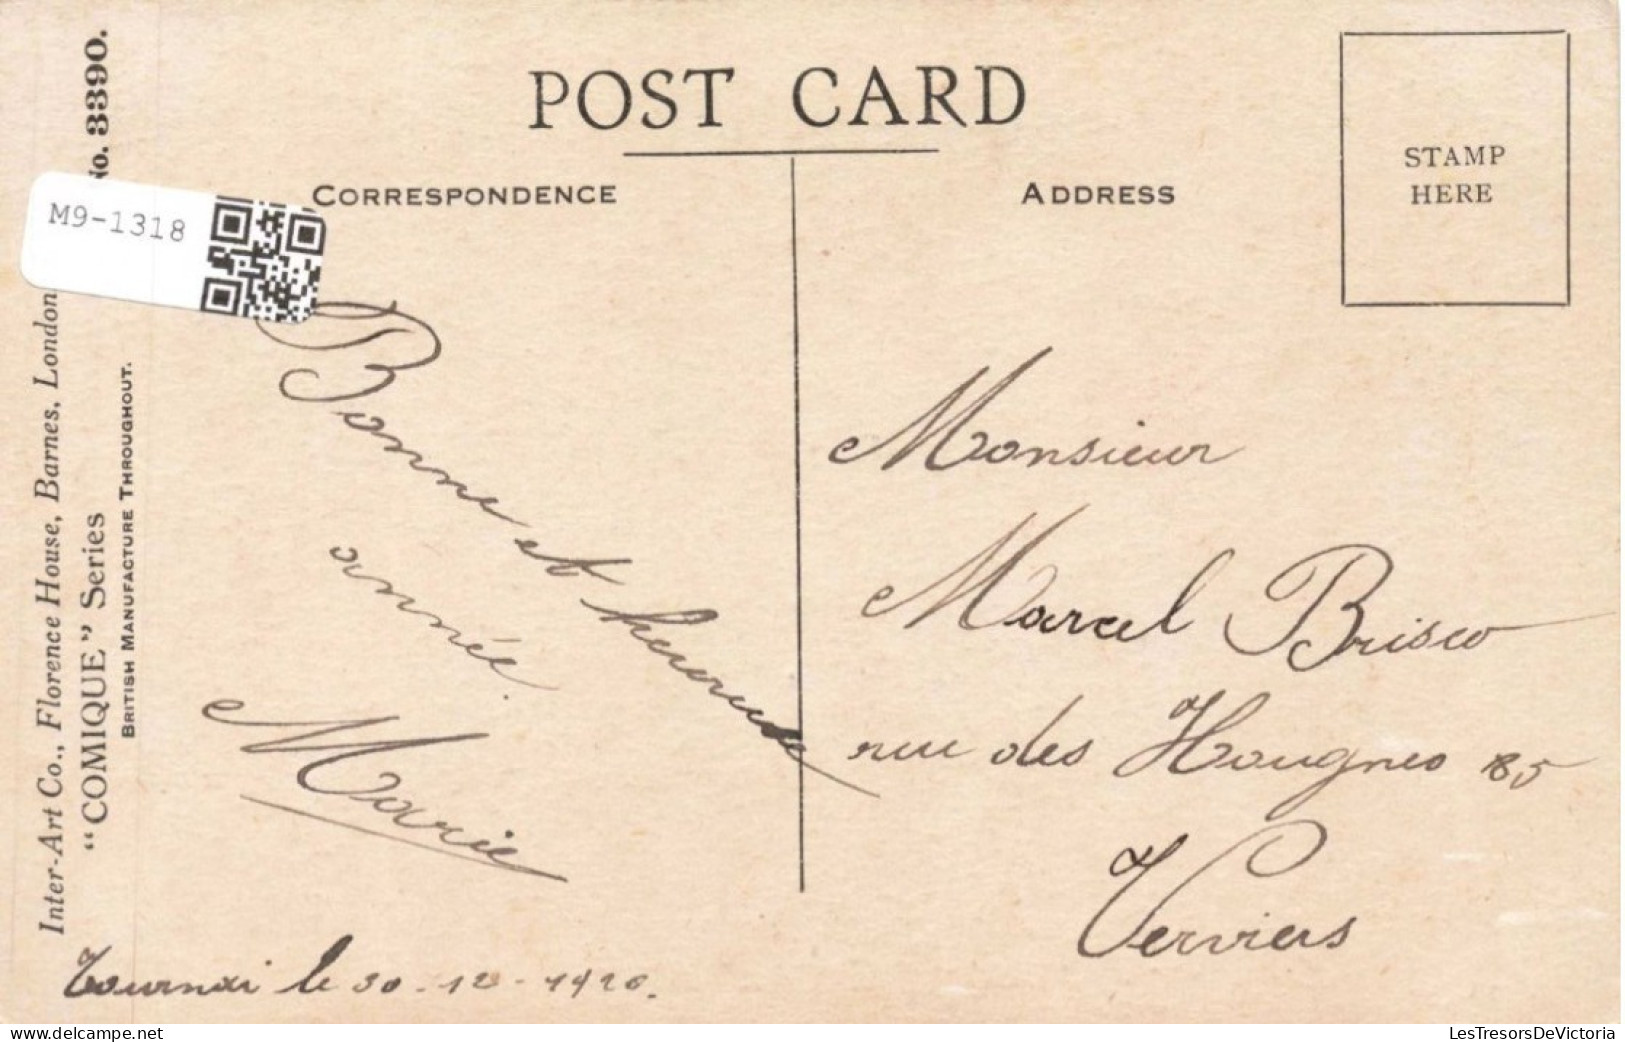 POST CARD
CORRESPONDENCE
ADDRESS
STAMP
HERE
M9-1318
No. 3390.
Inter-Art Co., Florence House, Barnes, London
"COMIQUE" Series
BRITISH MANUFACTURE THROUGHOUT.
Bonne et heureuse
année.
Marie
Tournai le 30-12-1920.
Monsieur
Marcel Brisco
rue des Hougnes 85
Verviers
LesTresorsDeVictoria
fr.delcampe.net